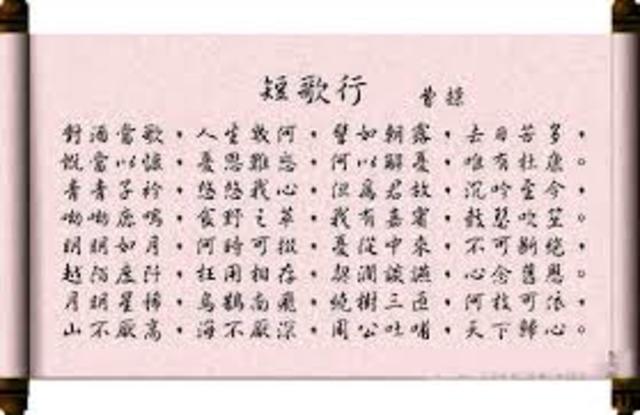 短歌行 曹操
對酒當歌，人生幾何，譬如朝露，去日苦多，
慨當以慷，憂思難忘，何以解憂，唯有杜康。
青青子衿，悠悠我心，但為君故，沉吟至今，
呦呦鹿鳴，食野之苹，我有嘉賓，鼓瑟吹笙。
明明如月，何時可掇，憂從中來，不可斷絕，
越陌度阡，枉用相存，契濶談讌，心念舊恩。
月明星稀，烏鵲南飛，繞樹三匝，何枝可依，
山不厭高，海不厭深，周公吐哺，天下歸心。